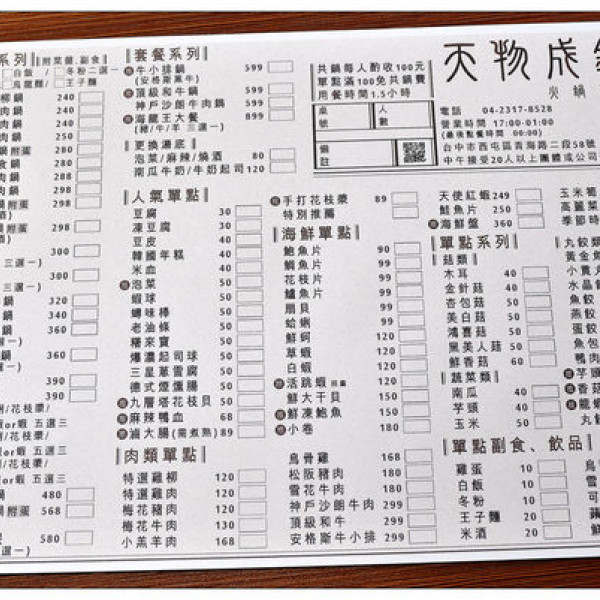 系列 附菜盤、副食
白飯/ 冬粉二選一
烏龍麵/ 王子麵
柳鍋 240
肉鍋 240
肉鍋 240
肉鍋 250
鍋附蛋 280
食鍋 280
肉鍋 288
鍋附蛋 298
鍋附蛋 298
300
三選一)
300
鍋 320
鍋 340
鍋 360
選一)
390
390
/花枝漿/
or蝦 五選三
/花枝漿/
or蝦 五選三
鍋 480
鍋附蛋 568
580
選一)
套餐系列
牛小排鍋 599
(安格斯黑牛)
頂級和牛鍋 599
神戶沙朗牛肉鍋 599
海龍王大餐 899
(豬/牛/羊 三選一)
更換湯底
泡菜/麻辣/燒酒 80
南瓜牛奶/牛奶起司 120
共鍋每人酌收100元
單點滿100免共鍋費
用餐時間1.5小時
桌號
人數
備註
天物成
火鍋
電話 04-2317-8528
營業時間 17:00-01:00
(最後點餐時間 00:00)
台中市西屯區青海路二段58號
中午接受20人以上團體或公司
人氣單點
豆腐 30
凍豆腐 30
豆皮 40
韓國年糕 40
米血 40
泡菜 50
蝦球 50
蟳味棒 50
老油條 50
糯米寶 50
爆濃起司球 50
三星蔥雪腐 50
德式煙燻腸 50
九層塔花枝貝 50
麻辣鴨血 68
滷大腸(需煮熟) 89
肉類單點
特選雞柳 120
特選雞肉 120
梅花豬肉 120
梅花牛肉 130
小羔羊肉 168
手打花枝漿 89
特別推薦
海鮮單點
鮑魚片 90
鯛魚片 90
花枝片 90
鱸魚片 90
扇貝 90
蛤蜊 90
鮮蚵 120
草蝦 120
白蝦 120
活跳蝦 150
鮮大干貝 150
鮮凍鮑魚 150
小卷 180
烏骨雞 168
松阪豬肉 180
雪花牛肉 180
神戶沙朗牛肉 299
頂級和牛 299
安格斯牛小排 299
天使紅蝦 249
鮭魚片 250
海鮮盤 360
單點系列
菇類
木耳 40
金針菇 40
杏包菇 50
美白菇 50
鴻喜菇 50
黑美人菇 50
鮮香菇 60
蔬菜類
南瓜 40
芋頭 40
玉米 50
單點副食、飲品
雞蛋 10
白飯 10
冬粉 10
王子麵 20
米酒 20
玉米筍
高麗菜
季節時
丸餃類
黃金魚
小貢丸
水晶餃
魚餃
燕餃
蛋餃
魚包
鴨肉
芋頭
香菇
龍蝦